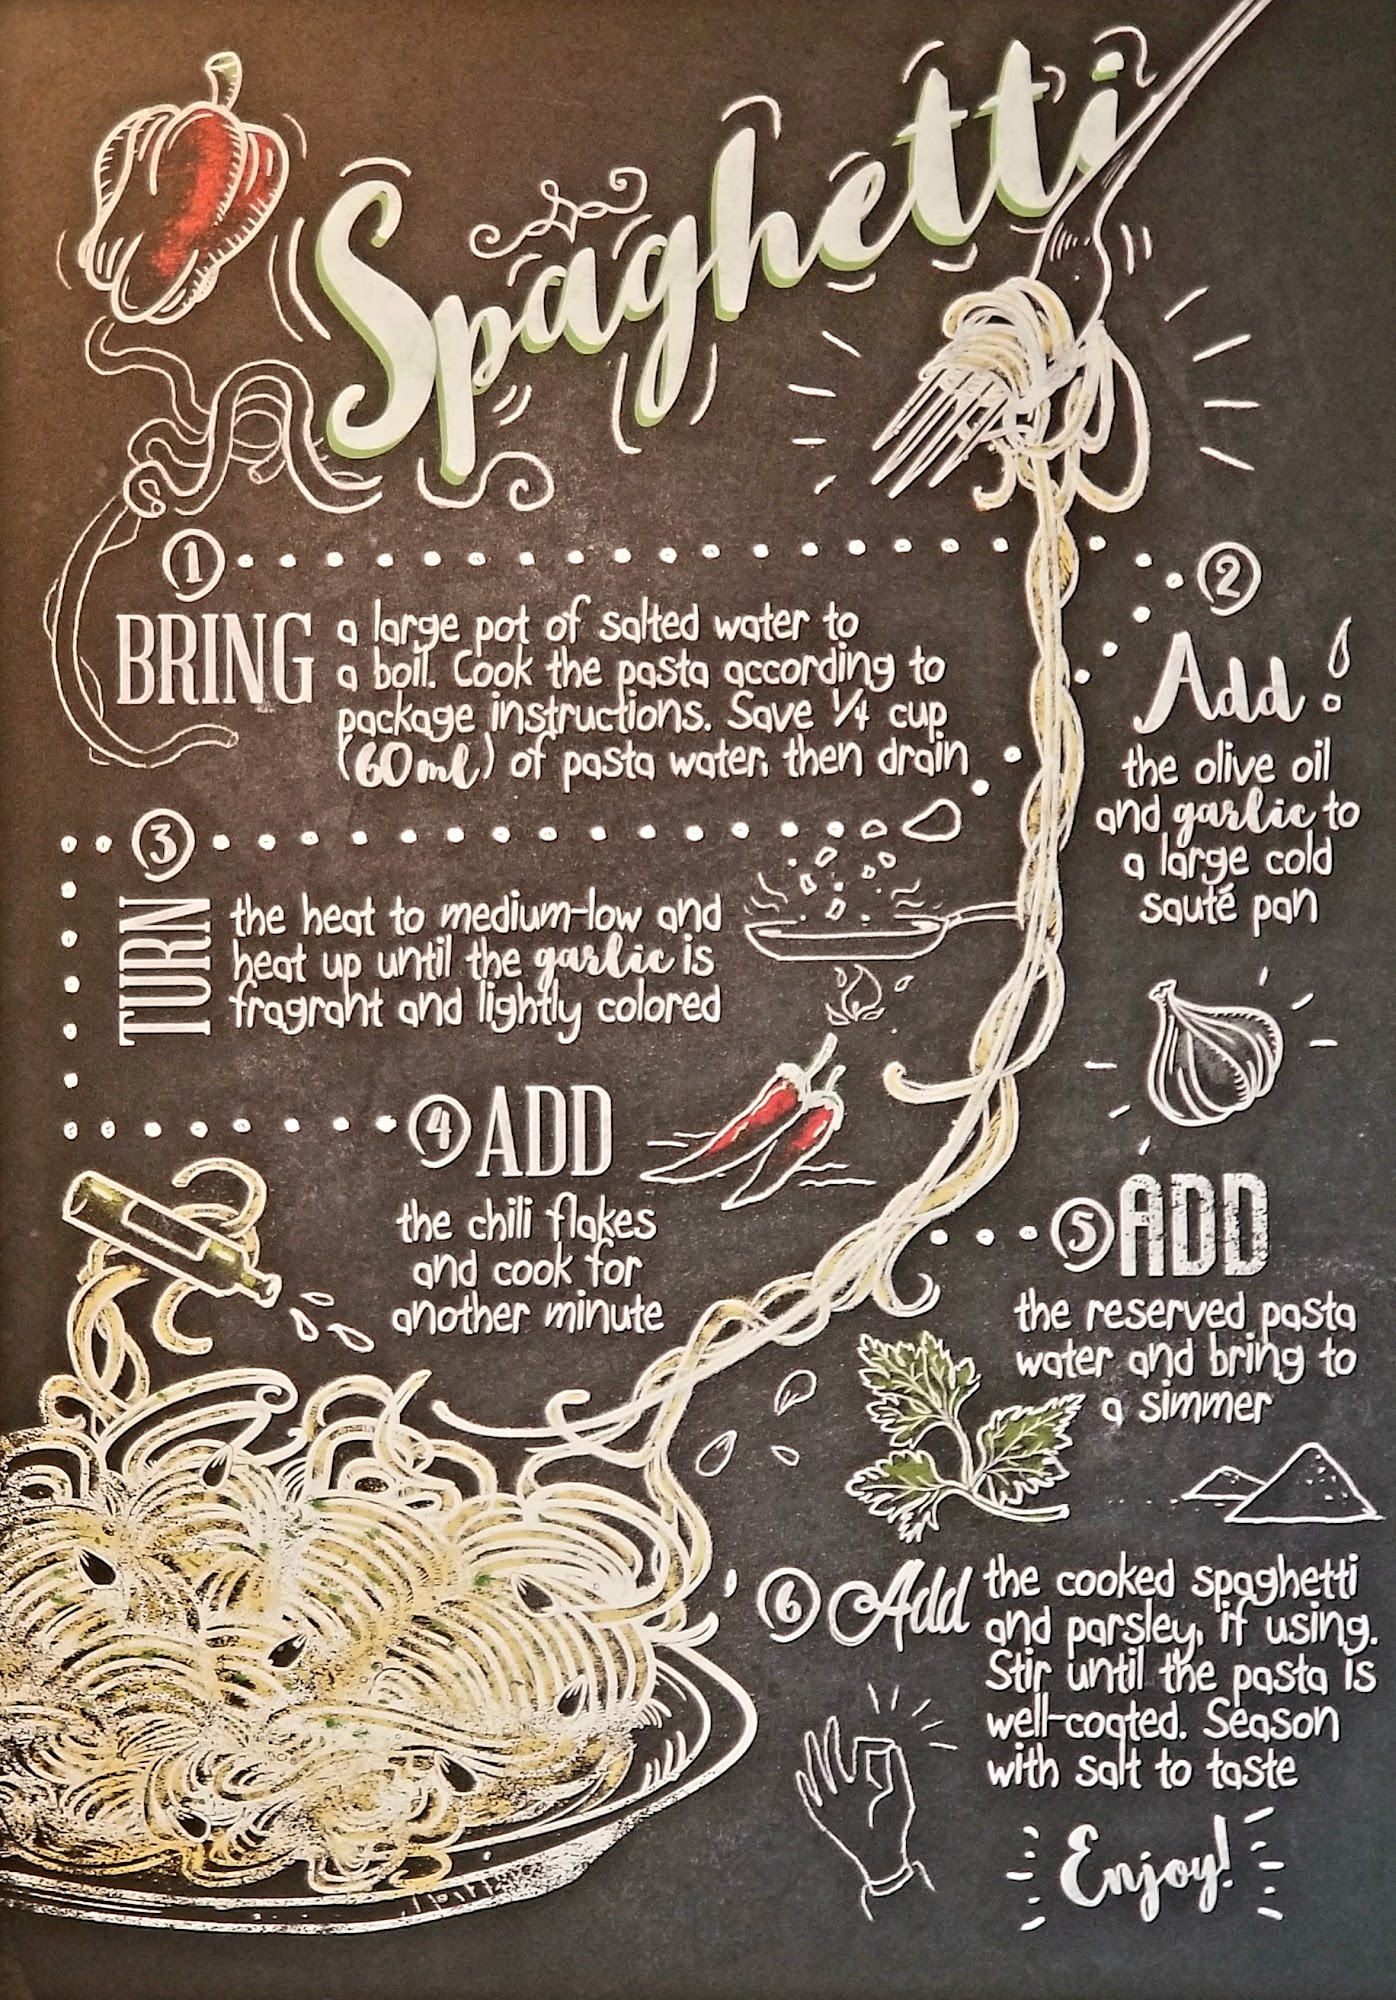 Spaghetti
1
BRING
a large pot of salted water to
a boil. Cook the pasta according to
package instructions. Save 1/4 cup
(60ml) of pasta water, then drain
2
Add
the olive oil
and garlic to
a large cold
sauté pan
3
TURN
the heat to medium-low and
heat up until the garlic is
fragrant and lightly colored
4 ADD
the chili flakes
and cook for
another minute
5 ADD
the reserved pasta
water and bring to
a simmer
6 Add the cooked spaghetti
and parsley, if using.
Stir until the pasta is
well-coated. Season
with salt to taste
Enjoy!